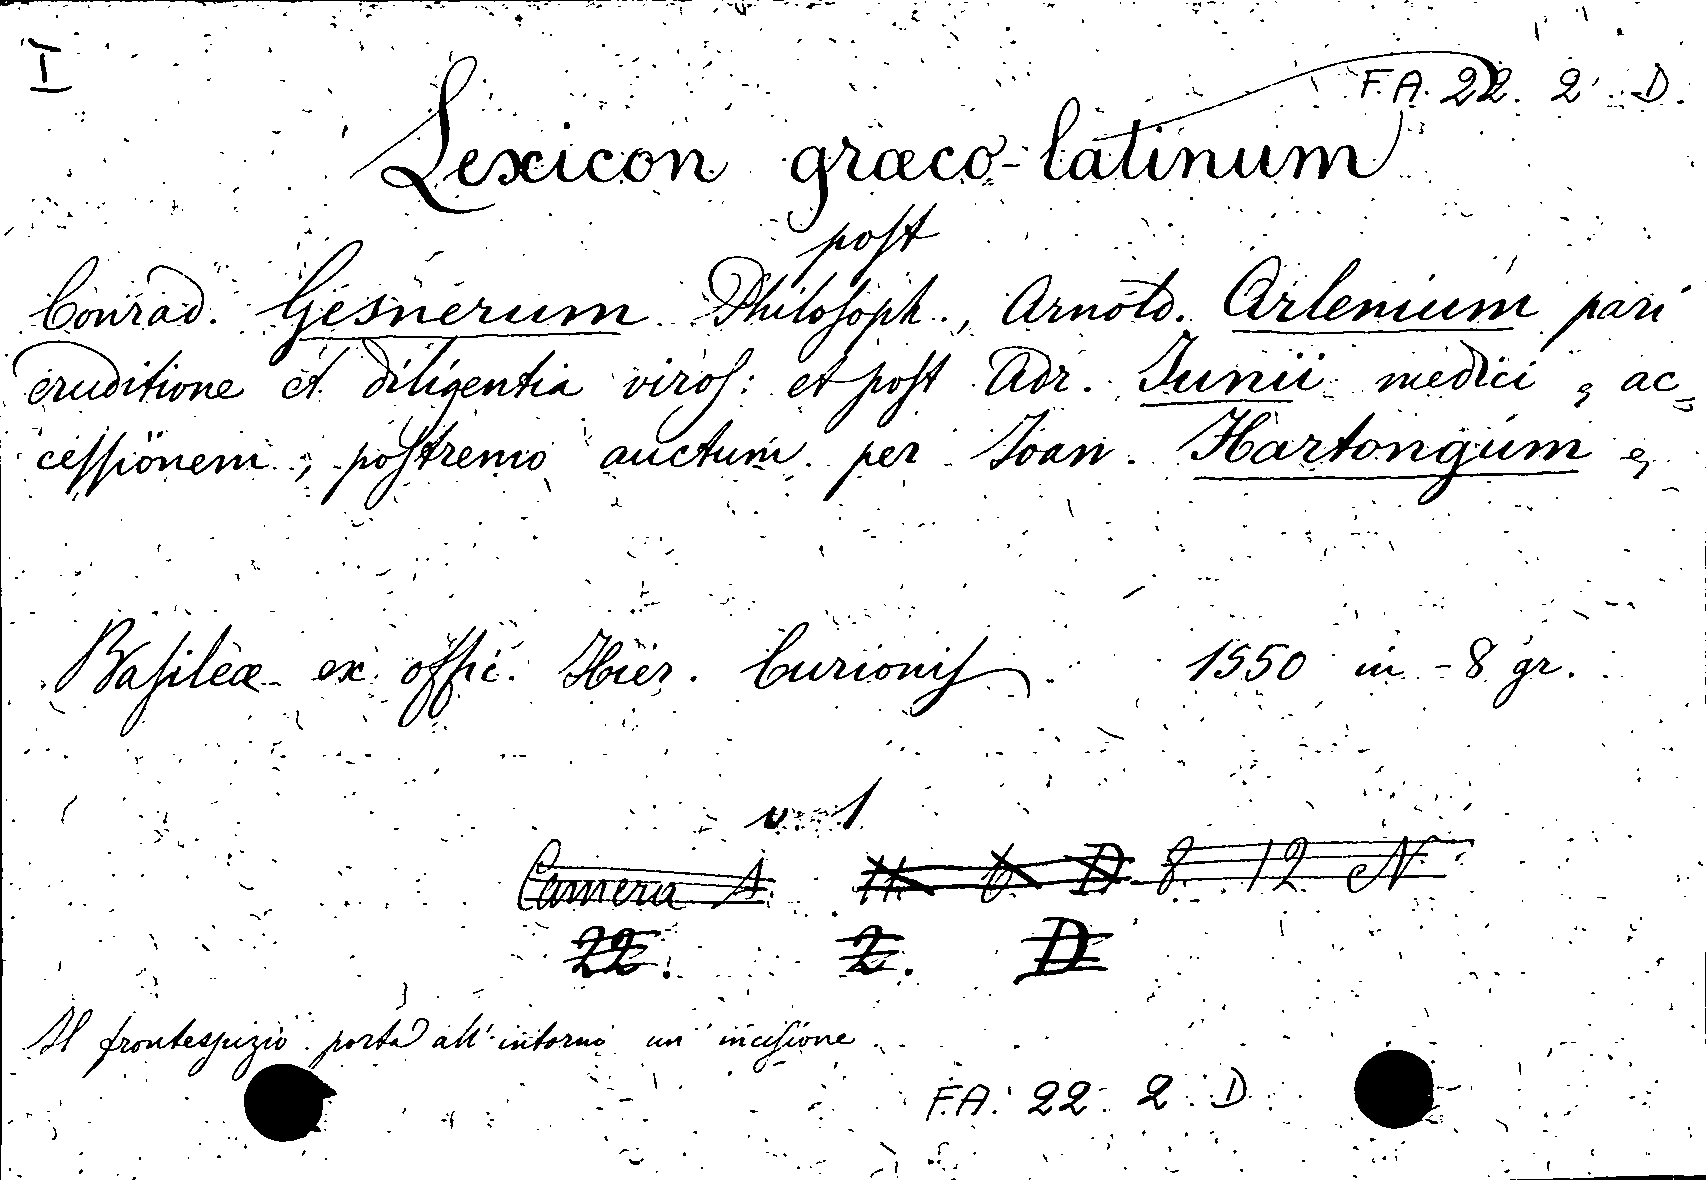 I
F.A. 22. 2 D.
Lexicon græco-latinum
post
Conrad. Gesnerum Philosoph., Arnold. Arlenium pari
eruditione et diligentia viros: et post Adr. Junii medici, ac=
cessionem, postremo auctum per Ioan. Hartongum,
Basileæ ex offic. Hier. Curionis 1550 in-8 gr.
v. 1
Camera 1. 11. 6. D 8. 12 N
22. 2. D
Il frontespizio porta all'intorno un incisione
F.A. 22 2 D